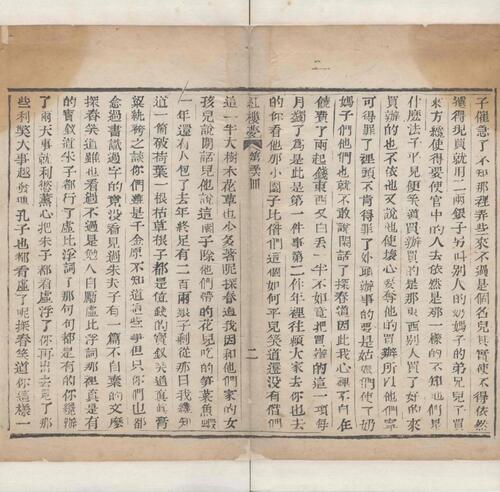 子催急了不知那裡弄些來不過是個名兒其實使不得依然
還得現買就用二兩銀子另叫別人的奶媽子的弟兄兒子買
來方纔使得要使官中的人去依然是那一樣的不知他們是
什麼法子平兒便笑道買辦買的是那東西別人買了好的來
買辦的也不依他又說他使壞心要奪他的買辦所以他們寧
可得罪了裡頭不肯得罪了外頭辦事的要是姑娘們使了奶
媽子們他們也就不敢說閒話了探春道因此我心裡不自在
饒費了兩起錢東西又白丟一半不如竟把買辦的這一項每
月蠲了為是此是第一件事第二件年裡往賴大家去你也去
的你看他那小園子比偺們這個如何平兒笑道還沒有偺們
紅樓夢 第 回 二
這一半大樹木花草也少多著呢探春道我因和他們家的女
孩兒說閒話兒他說這園子除他們帶的花兒吃的笋菜魚蝦
一年還有人包了去年終足有二百兩銀子剩從那日我纔知
道一個破荷葉一根枯草根子都是值錢的寶釵笑道真真膏
粱紈袴之談你們雖是千金原不知道這些事但只你們也都
念過書識過字的竟沒看見過朱夫子有一篇不自棄的文麼
探春笑道雖也看過不過是勉人自勵虛比浮詞那裡真是有
的寶釵道朱子都行了虛比浮詞了那句句都是有的你纔辦
了兩天事就利慾薰心把朱子都看虛浮了你再出去見了那
些利獘大事越發連孔子也都看虛了呢探春笑道你這樣一